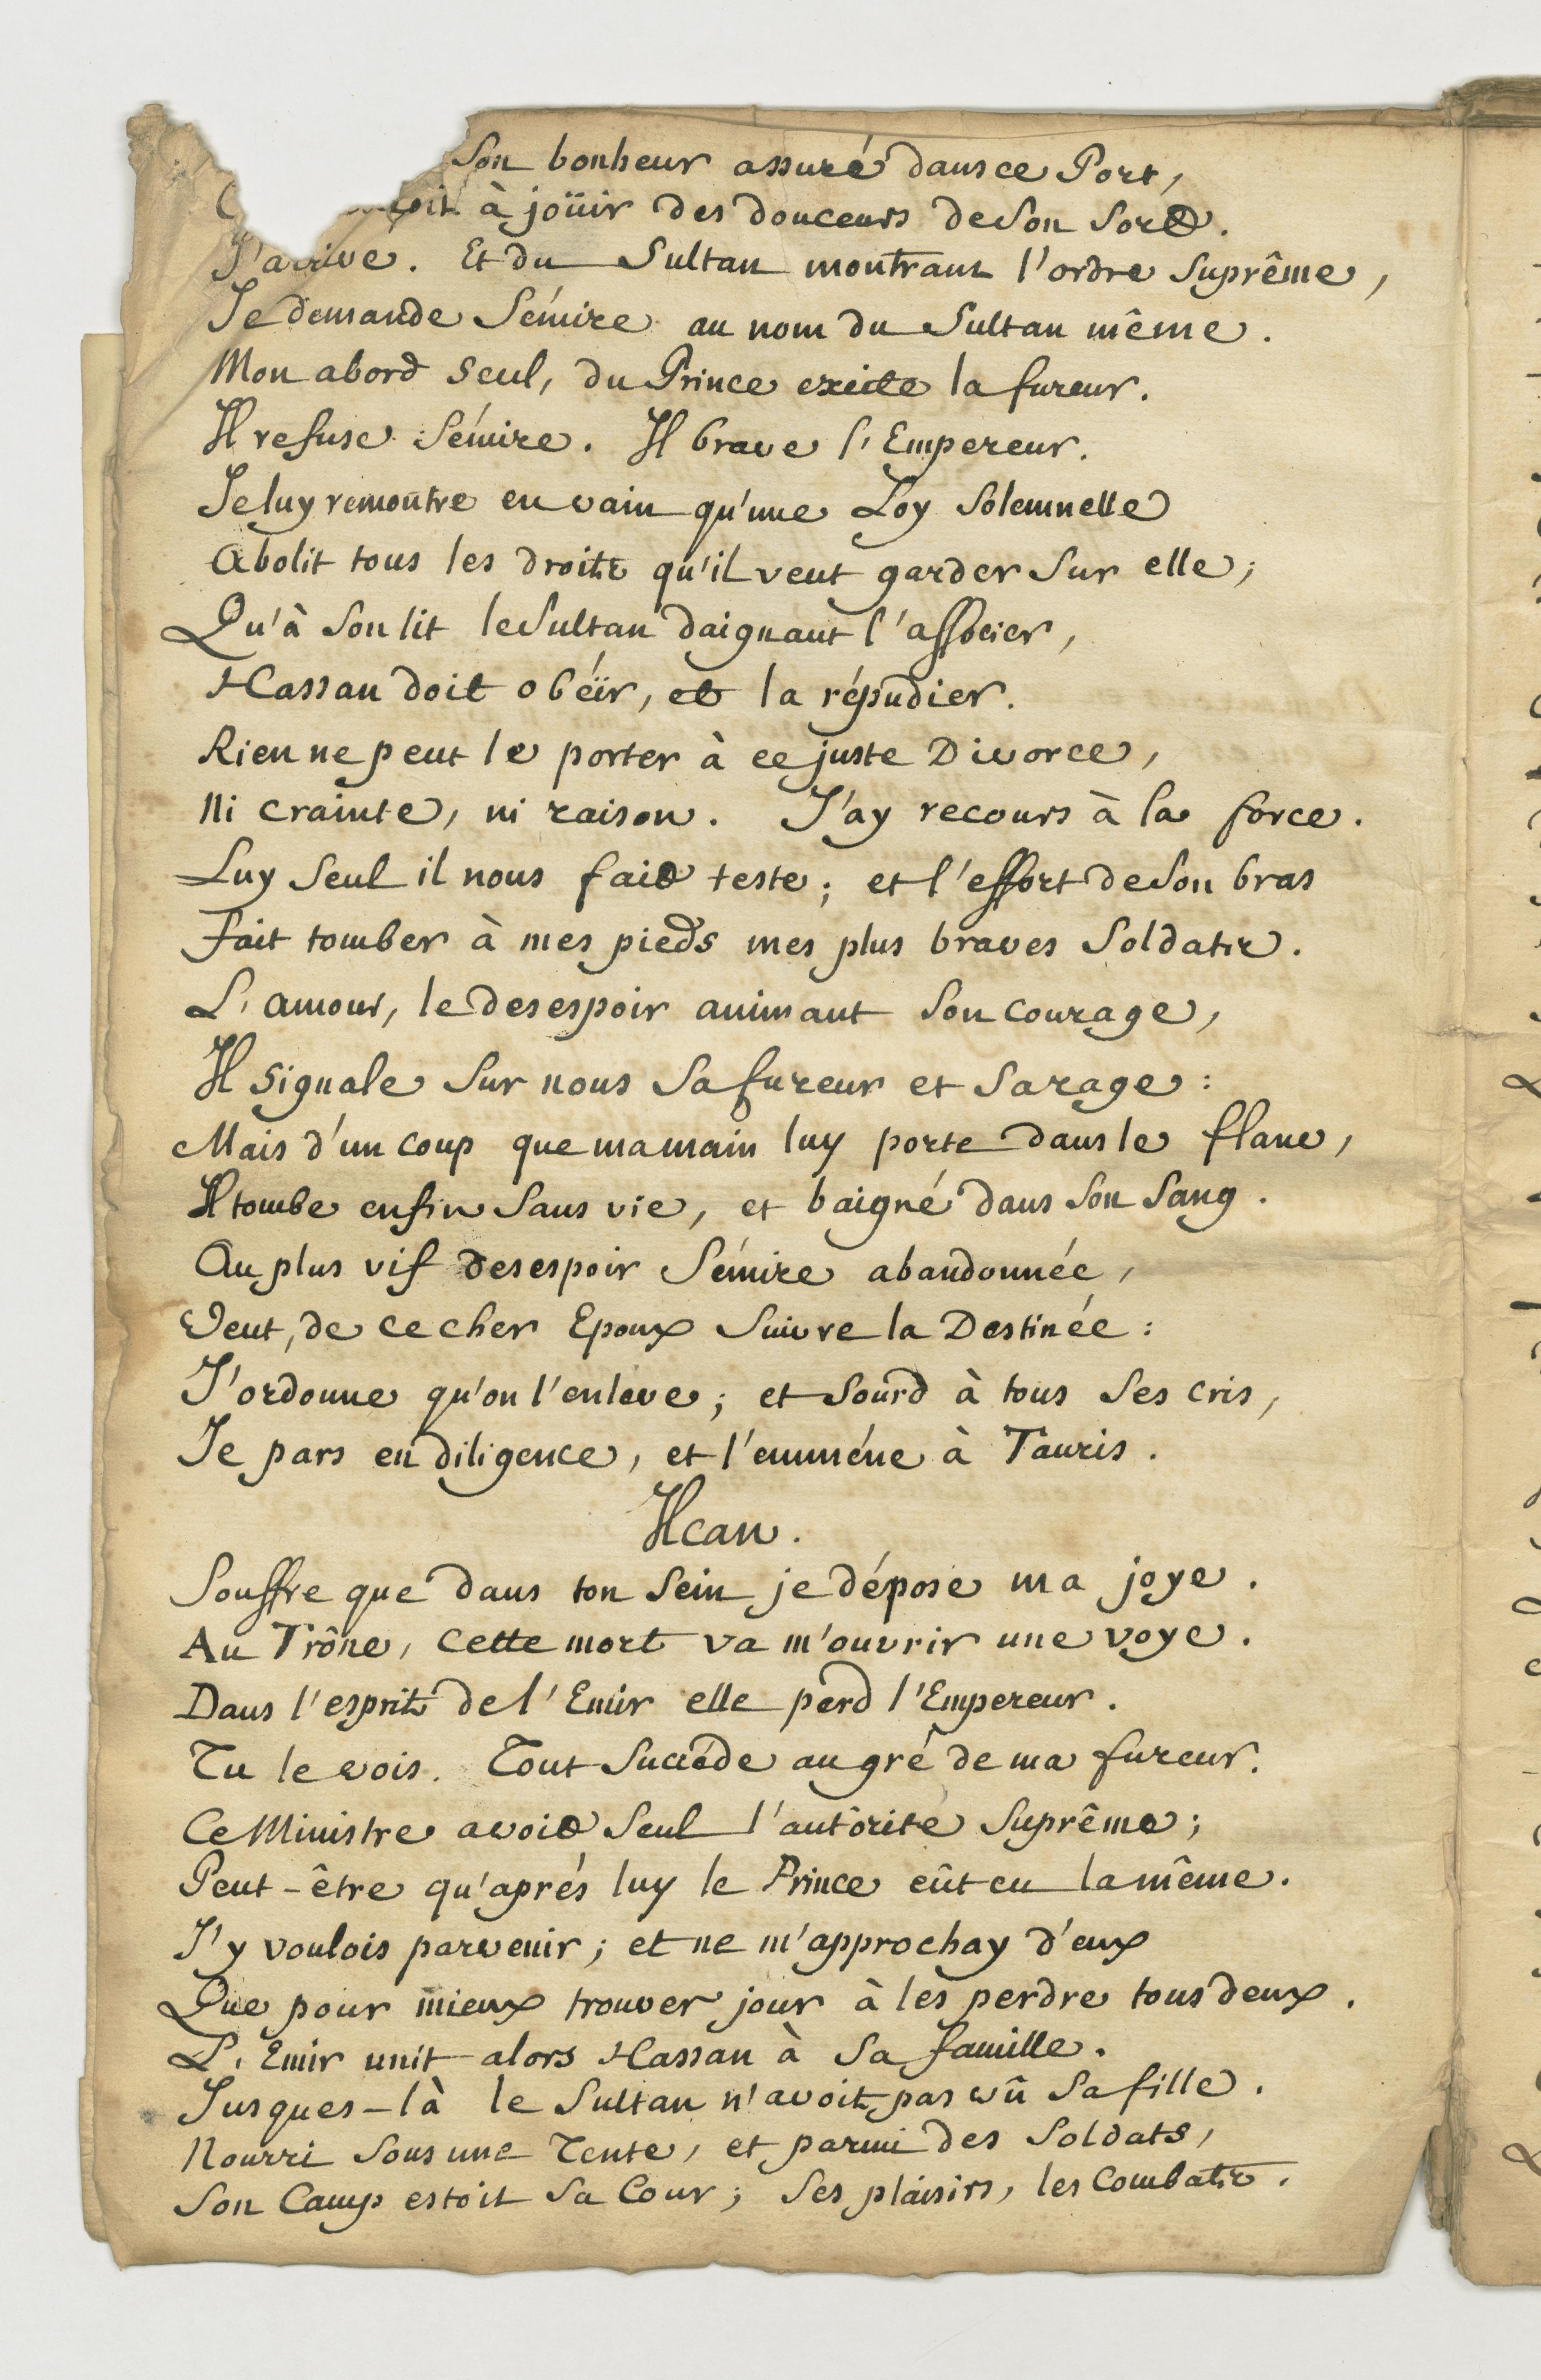 Son bonheur assuré dans ce Port,
à joüir des douceurs de Son Sort.
J'arrive. Et du Sultan montrant l'ordre Suprême,
Je demande Sémire au nom du Sultan même.
Mon abord Seul, du Prince excite la fureur.
Il refuse Sémire. Il brave l'Empereur.
Je luy remontre en vain qu'une Loy Solemnelle
Abolit tous les droits qu'il veut garder Sur elle;
Qu'à Son lit le Sultan daignant l'associer,
Hassan doit obéïr, et la répudier.
Rien ne peut le porter à ce juste Divorce,
Ni crainte, ni raison. J'ay recours à la force.
Luy Seul il nous fait teste; et l'effort de Son bras
Fait tomber à mes pieds mes plus braves Soldats.
L'amour, le desespoir animant Son courage,
Il Signale Sur nous Sa fureur et Sa rage:
Mais d'un coup que ma main luy porte dans le flanc,
Il tombe enfin Sans vie, et baigné dans Son Sang.
Au plus vif desespoir Sémire abandonnée,
Veut, de ce cher Epoux Suivre la Destinée:
J'ordonne qu'on l'enleve; et Sourd à tous Ses cris,
Je pars en diligence, et l'emméne à Tauris.
Ilcan.
Souffre que dans ton Sein je dépose ma joye.
Au Trône, cette mort va m'ouvrir une voye.
Dans l'esprit de l'Emir elle perd l'Empereur.
Tu le vois. Tout Succéde au gré de ma fureur.
Ce Ministre avoit Seul l'autôrité Suprême;
Peut-être qu'aprés luy le Prince eût eu la même.
J'y voulois parvenir; et ne m'approchay d'eux
Que pour mieux trouver jour à les perdre tous deux.
L'Emir unit alors Hassan à Sa famille.
Jusques-là le Sultan n'avoit pas vû Sa fille.
Nourri Sous une Tente, et parmi des Soldats,
Son Camp estoit Sa Cour; Ses plaisirs, les Combats.